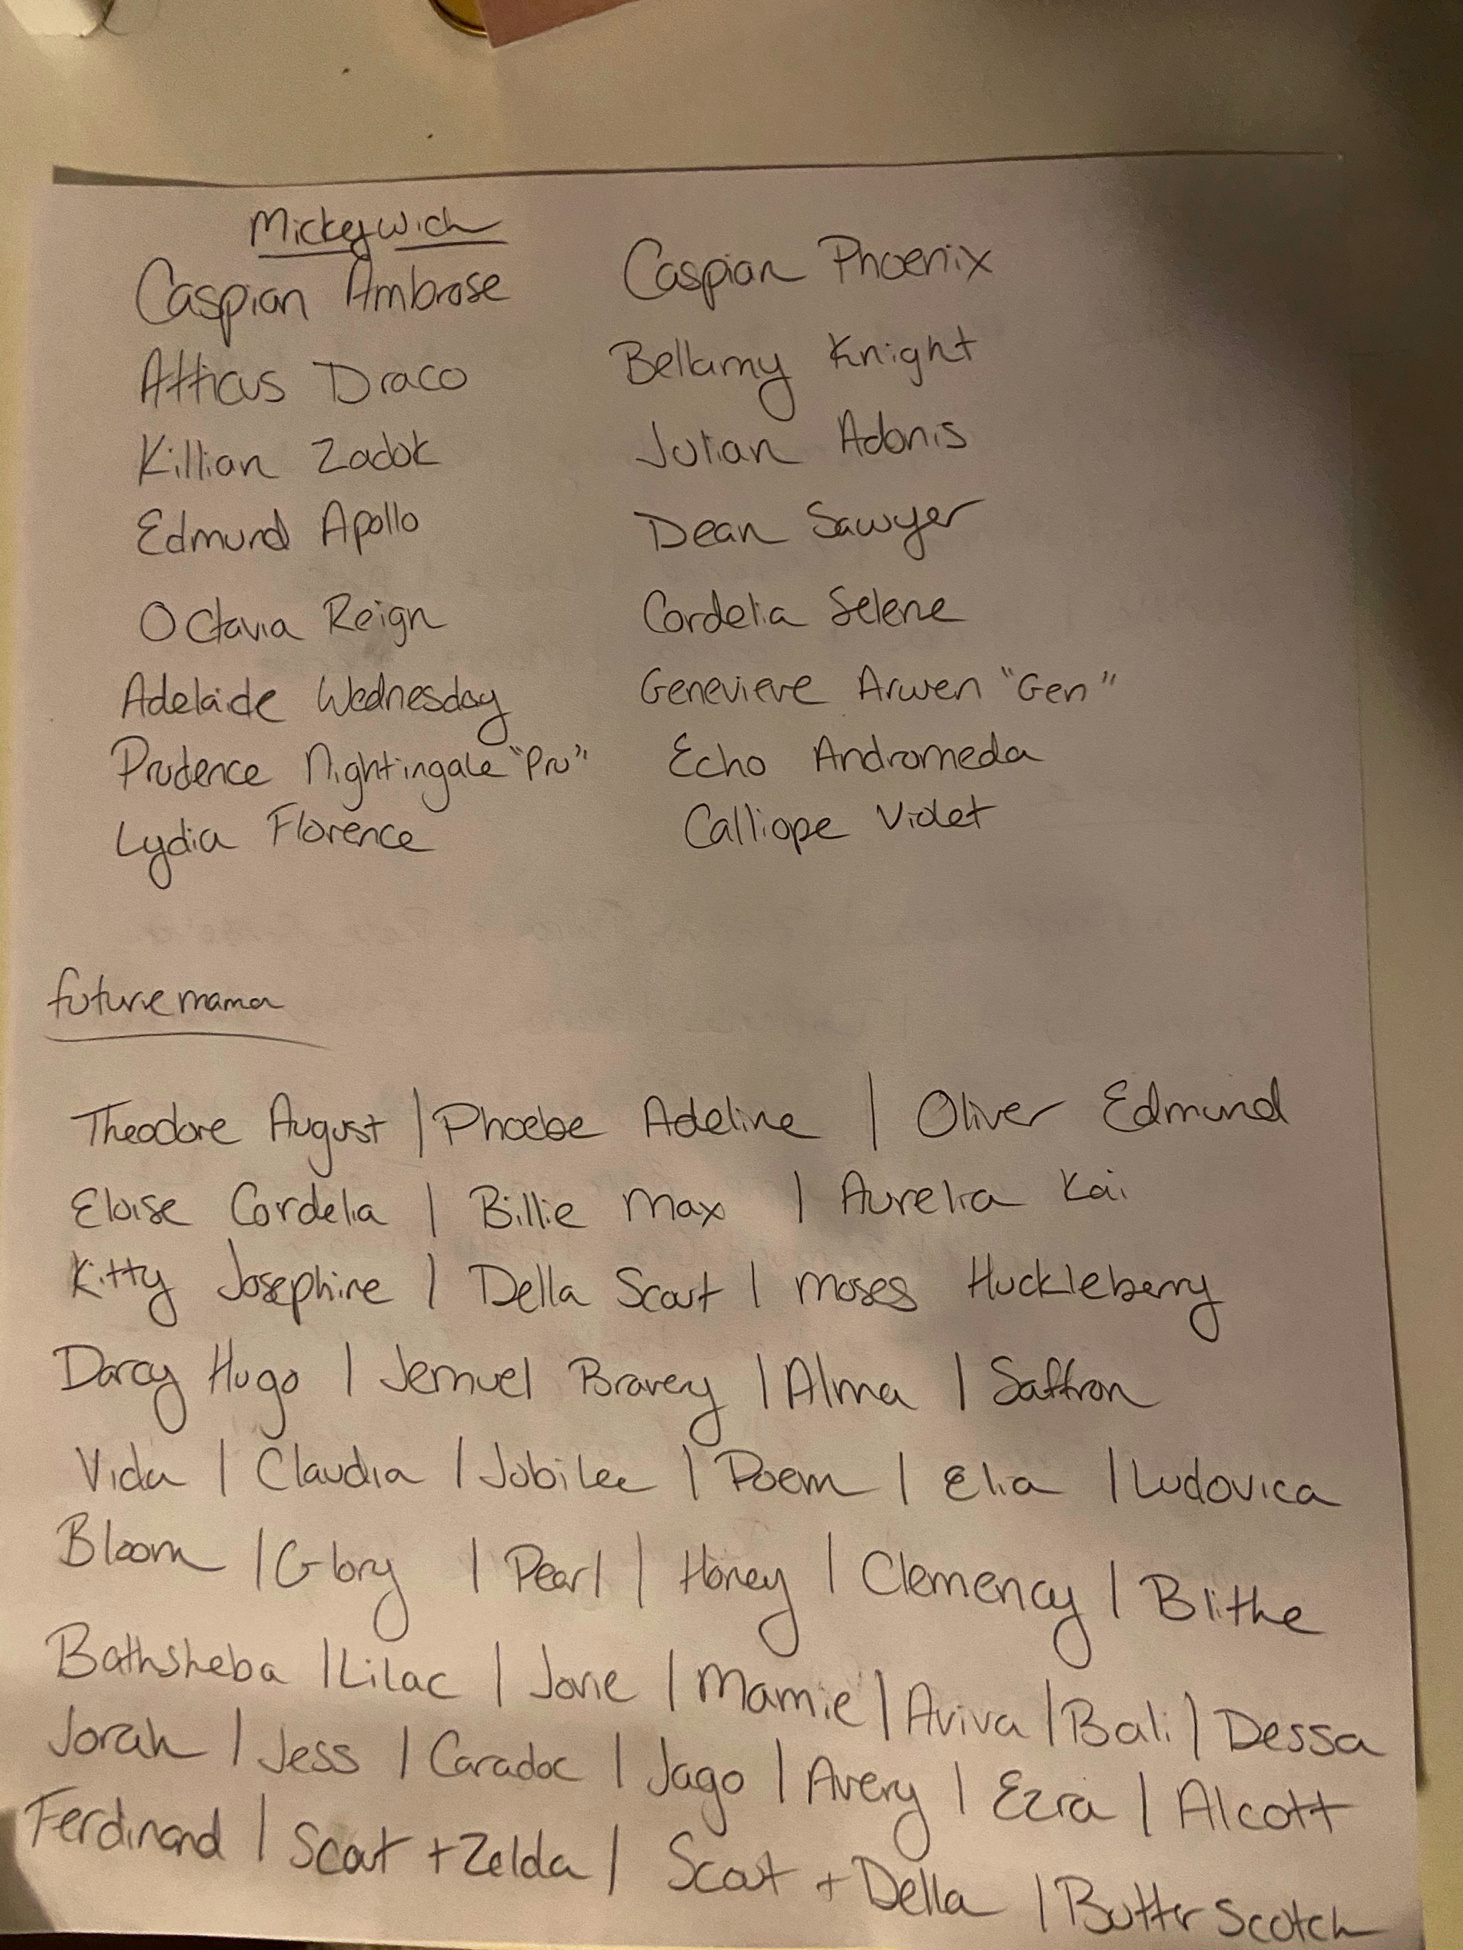 Mickeywich
Caspian Ambrose Caspian Phoenix
Atticus Draco Bellamy Knight
Killian Zadok Julian Adonis
Edmund Apollo Dean Sawyer
Octavia Reign Cordelia Selene
Adelaide Wednesday Genevieve Arwen "Gen"
Prudence Nightingale "Pru" Echo Andromeda
Lydia Florence Calliope Violet
futuremama
Theodore August | Phoebe Adeline | Oliver Edmund
Eloise Cordelia | Billie Max | Aurelia Kai
Kitty Josephine | Della Scout | Moses Huckleberry
Darcy Hugo | Jemuel Bravery | Alma | Saffron
Vida | Claudia | Jubilee | Poem | Elia | Ludovica
Bloom | Glory | Pearl | Honey | Clemency | Blithe
Bathsheba | Lilac | Jorie | Mamie | Aviva | Bali | Dessa
Jorah | Jess | Caradoc | Jago | Avery | Ezra | Alcott
Ferdinand | Scout + Zelda | Scout + Della | Butterscotch